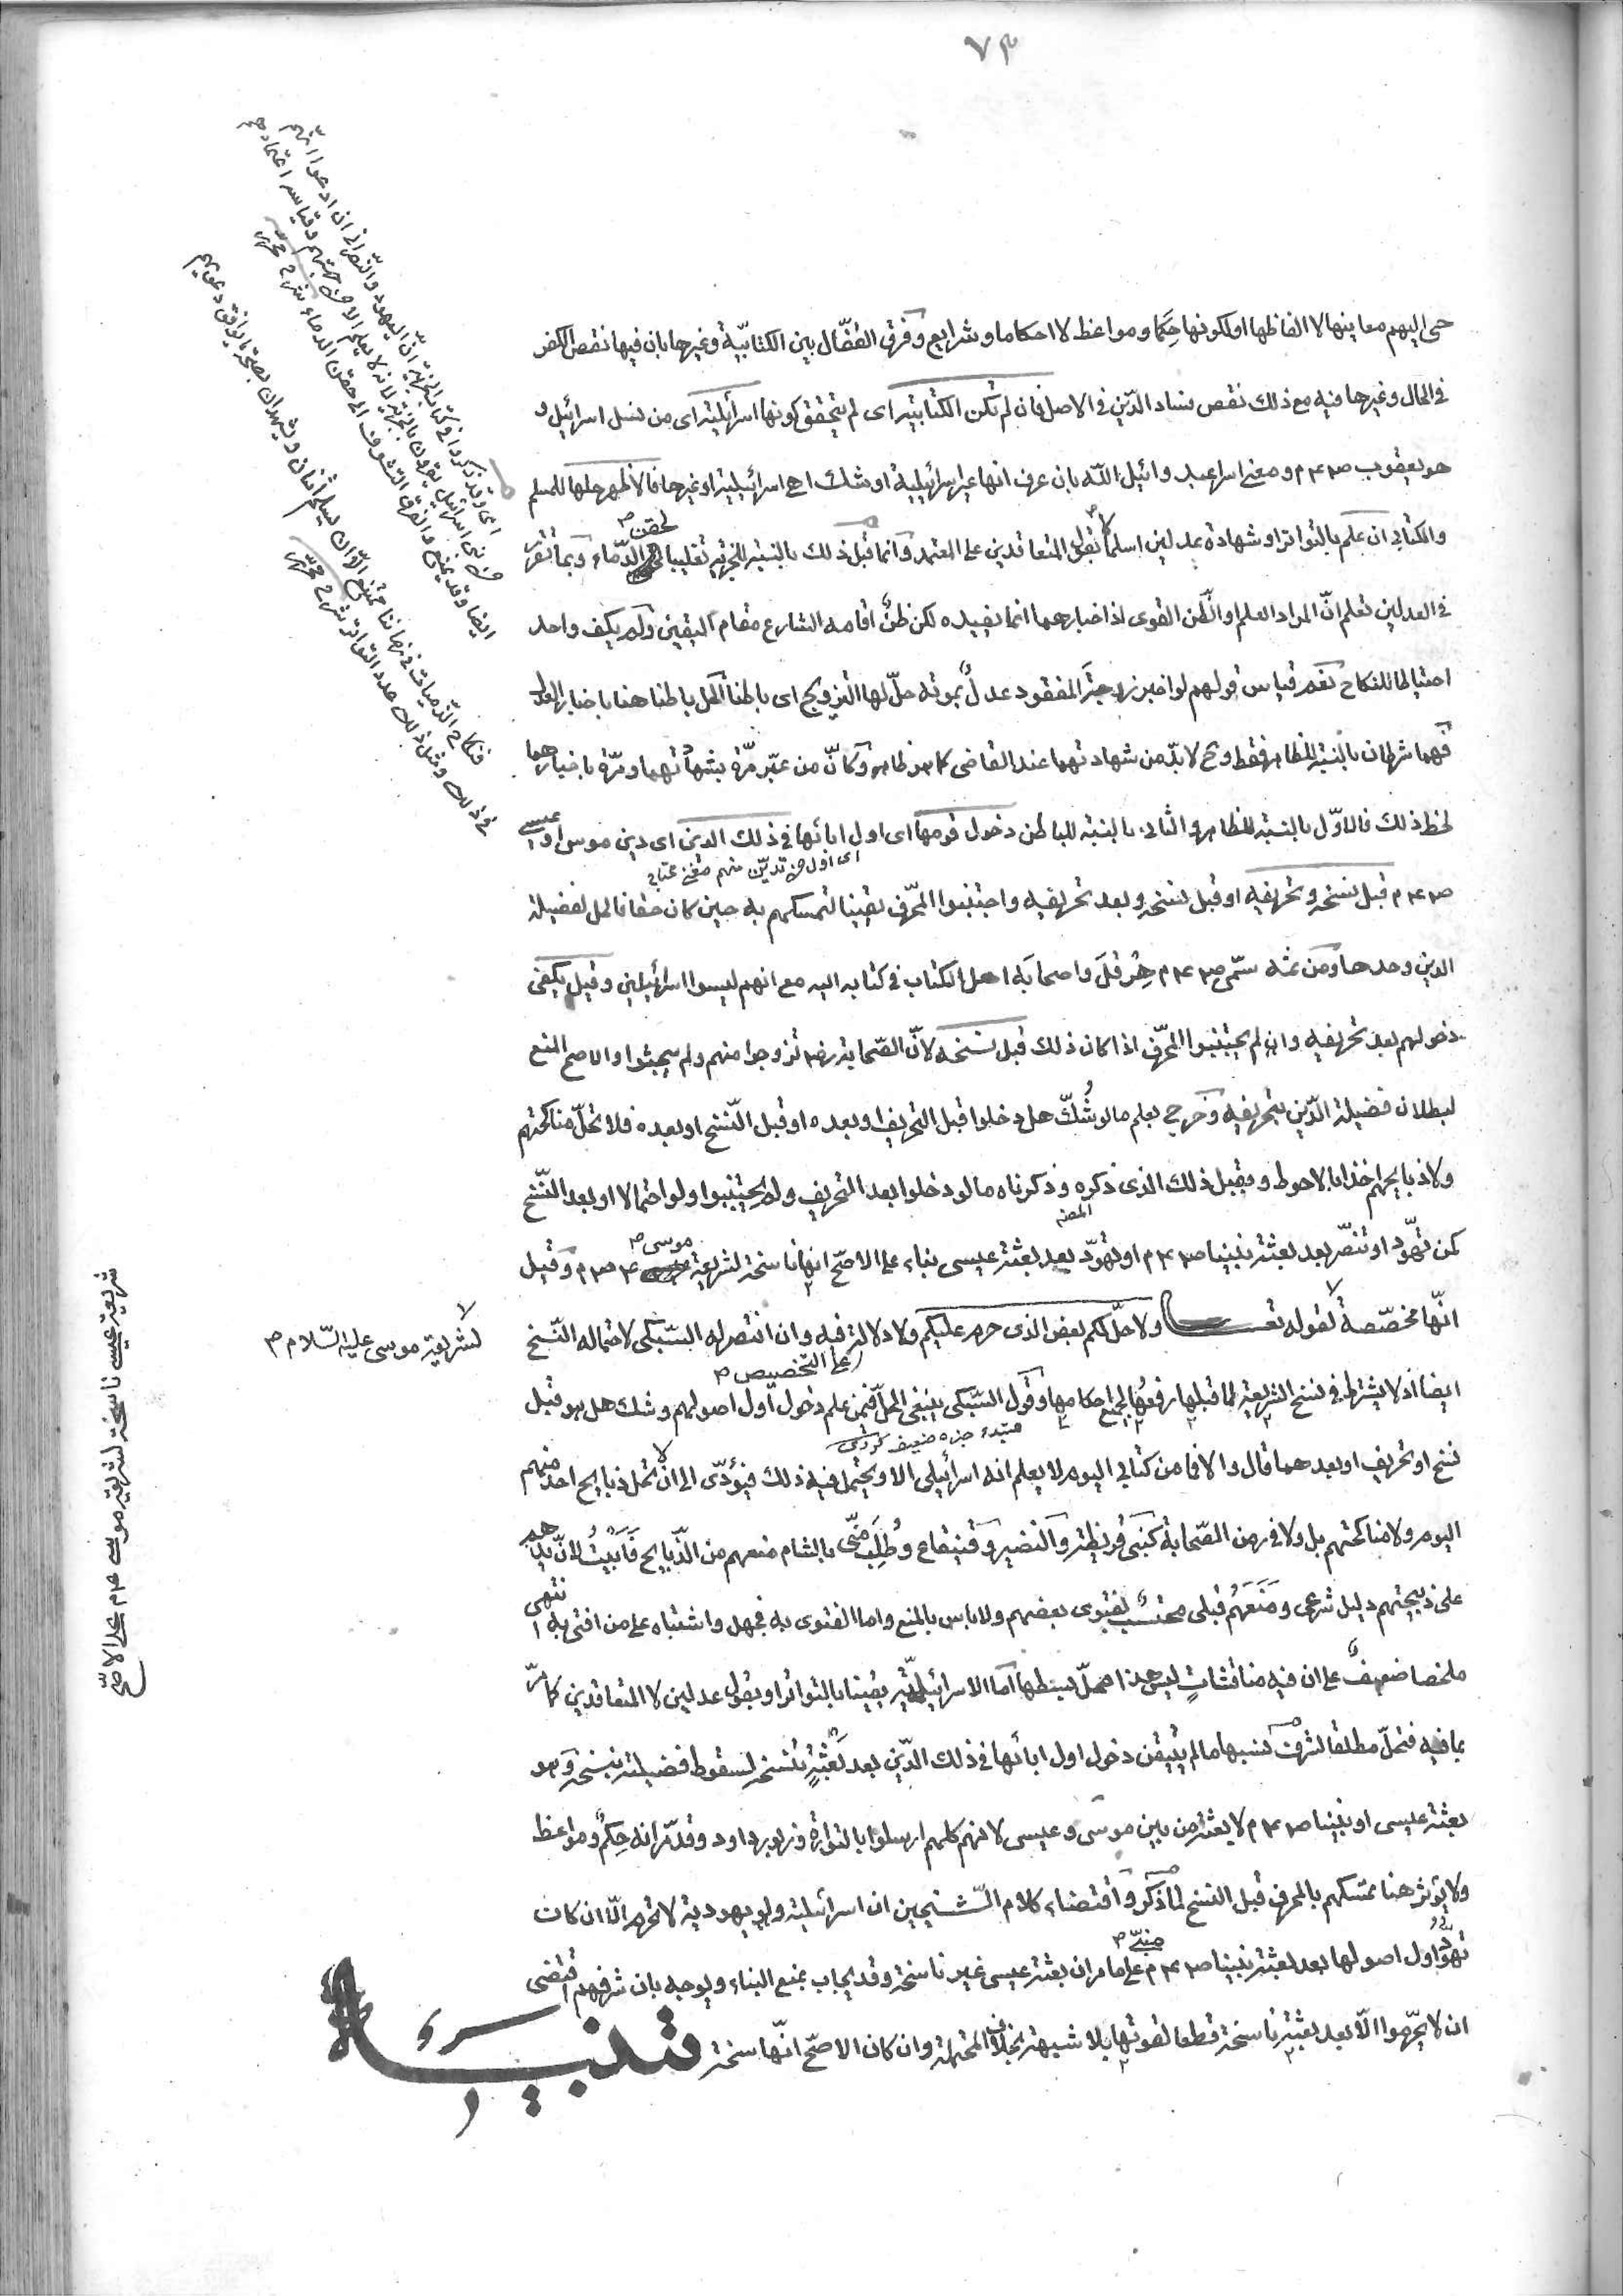 ٧٣
حى اليهم معانيها لا الفاظها او لكونها حِكَما ومواعظ لا احكاما وشرايع وفرق القفّال بين الكتابيّة وغيرها بان فيها نقص الكفر
فى الحال وغيرها فيه مع ذلك نقص فساد الدّين فى الاصل فان لم تكن الكتابيّة اى لم يتحقق كونها اسرائيلية اى من نسل اسرائيل و
هو يعقوب ص٣م ومعنى اسرا عبد وائيل الله بان عرف انها غير اسرائيلية او شك اهى اسرائيلية او غيرها فالاظهر حلها للمسلم
والكتابى ان علم بالتواتر او شهادة عدلين اسلما لا بقول المتعاقدين على المعتمد وانما قبل ذلك بالنسبة للجزية تغليبا لحقن الدّماء وبما تقرّر
فى العدلين تعلم انّ المراد العلم او الظن القوى اذ اخبارهما انما يفيده لكن ظنٌّ اقامه الشارع مقام اليقين ولم يكف واحد
احتياطا للنكاح نعم قياس قولهم لو اخبر زوجة المفقود عدلٌ بموته حلّ لها التزويج اى باطنا الحل باطنا هنا باخبار العدل
فهما شرطان بالنسبة للظاهر فقط وح لا بدّ من شهادتهما عند القاضى كما هو ظاهر وكانّ من عبّر مرّة بشهادتهما ومرّة باخبارهما
لحظ ذلك فالاوّل بالنسبة للظاهر والثانى بالنسبة للباطن دخول قومها اى اول ابائها فى ذلك الدين اى دين موسى او عيسى
اى اول من تديّن منهم
ص٣م قبل نسخه وتحريفه او قبل نسخه وبعد تحريفه واجتنبوا المحرّف يقينا لتمسكهم به حين كان حقا فالحل لفضيلة
الدين وحدها ومن ثمه سمّى ص٣م هِرَقْلَ واصحابَه اهل الكتاب فى كتابه اليه مع انهم ليسوا اسرائيلين وقيل يكفى
دخولهم بعد تحريفه وان لم يجتنبوا المحرّف اذا كان ذلك قبل نسخه لانّ الصّحابة رض تزوجوا منهم ولم يبحثوا والاصح المنع
لبطلان فضيلة الدّين بتحريفه وخرج بعلم ما لو شُكّ هل دخلوا قبل التحريف او بعده او قبل النّسخ او بعده فلا تحلّ مناكحتهم
ولا ذبايحهم اخذا بالاحوط وبقبل ذلك الذى ذكره وذكرناه ما لو دخلوا بعد التحريف ولم يجتنبوا ولو احتمالا او بعد النّسخ
المصنف
كمن تهوّد او تنصّر بعد بعثة نبينا ص٣م او تهوّد بعد بعثة عيسى بناء على الاصحّ انها ناسخة لشريعة موسى ص٣م وقيل
انّها مخصّصة لا لقوله تعالى ولاحلّ لكم بعض الذى حرم عليكم ولا دلالة فيه وان انتصر له السّبكى لاحتماله النّسخ
على التخصيص
ايضا اذ لا يشترط فى نسخ الشريعة لما قبلها رفعُها لجميع احكامها وقول السّبكى ينبغى الحلّ فيمن علم دخول اول اصولهم وشك هل هو قبل
مبتداء خبره ضعيف كردى
نسخ او تحريف او بعدهما قال والا فما من كتابى اليوم لا يعلم انه اسرائيلى الا ويحتمل فيه ذلك فيؤدّى الى ان لا تحل ذبايح احد منهم
اليوم ولا مناكحتهم بل ولا فى زمن الصّحابة كبنى قريظة والنضير وقنيقاع وطُلِب منّى بالشام منعهم من الذّبايح فابيتُ لانّ يدهم
على ذبيحتهم دليل شرعى ومَنَعَهم قبلى محتسبٌ بفتوى بعضهم ولا باس بالمنع واما الفتوى به فجهل واشتباه على من افتى به انتهى
ملخصا ضعيفٌ على ان فيه مناقشاتٍ ليس هذا محلّ بسطها اما الاسرائيلية يقينا بالتواتر او بقول عدلين لا المتعاقدين كما مرّ
بما فيه فتحلّ مطلقا لشرف نسبها ما لم يتيقن دخول اول ابائها فى ذلك الدّين بعد بَعْثَةٍ تنسخه لسقوط فضيلته بنسخه وهو
بعثة عيسى او نبينا ص٣م لا بعثة من بين موسى وعيسى لانهم كلهم ارسلوا بالتورٰة وزبور داود وقد مرّ انه حِكَمٌ ومواعظ
ولا يؤثر هنا تمسكهم بالمحرف قبل النسخ لما ذكر واقتضاء كلام الشيخين ان اسرائيلية ولو يهودية لا تحرم الّا ان كان
تهوّد اول اصولها بعد بعثة نبينا ص٣م مبنىّ على ما مر ان بعثة عيسى غير ناسخة وقد يجاب بمنع البناء ويوجه بان شرفهم اقتضى
ان لا يحرّموا الّا بعد بعثةٍ ناسخة قطعا لقوتها بلا شبهة بخلاف المحتملة وان كان الاصحّ انّها ناسخة تنبيه
اى وقد ذكروا فى كتاب الجزية انّ اليهود والنّصارى ان ادعوا انهم
من بنى اسرائيل يقرون بالجزية لانه لا يعلم الا من جهتهم وقياسه اعتمادهم
ايضا وقد يمنع والفرق التشوف الى حقن الدماء
فنكاح الذّميات فى زماننا ممتنع الّا ان يسلم اثنان ويشهدان بصحة ما يوافق دعويهم
فى ذلك ومثل ذلك عدد التواتر
لشريعة موسى عليه السّلام
شريعة عيسى ناسخة لشريعة موسى ص٣م على الاصحّ